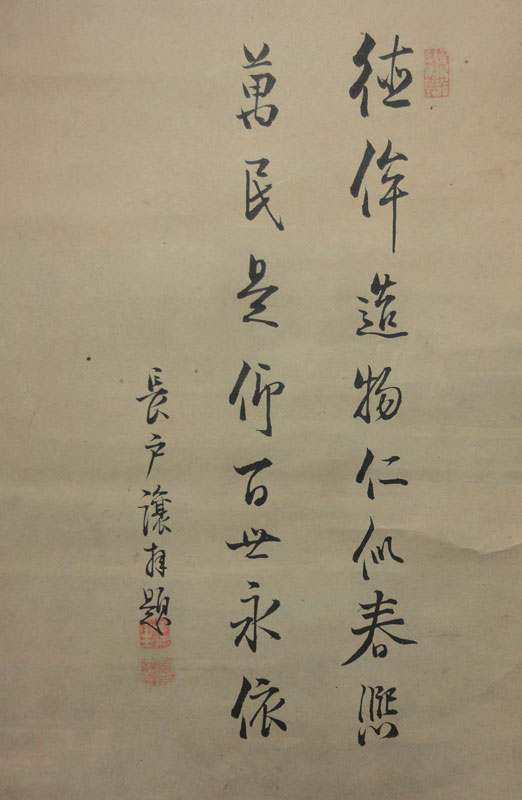 徳侔造物仁似春熈
萬民是仰百世永依
長戸譲拝題